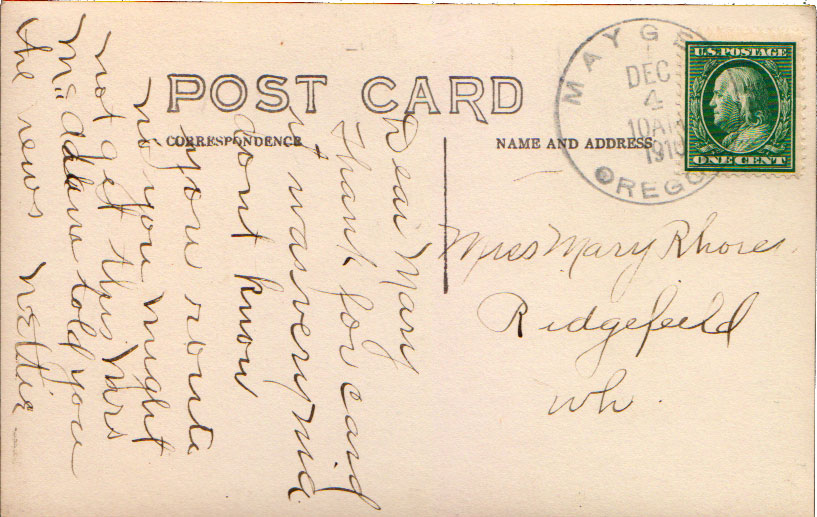 POST CARD
CORRESPONDENCE
NAME AND ADDRESS
MAYGE
DEC
4
10AM
1910
OREGO
U.S. POSTAGE
ONE CENT
Dear Mary
Thank for card
it was very
dont know
you route
no you might
not get this Mrs
told you
the news Nettie
Miss Mary
Ridgefeild
Wh.